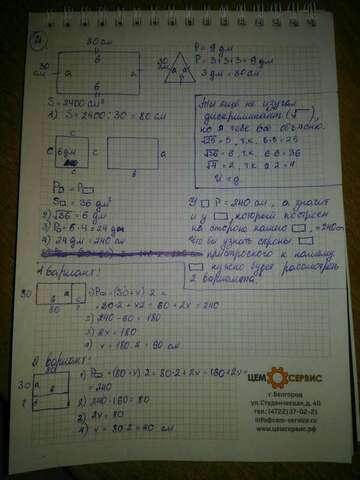 80 см
в
30 см
а
а
в
S = 2400 см²
1) S = 2400 : 30 = 80 см
P = 9 дм
P = 3+3+3 = 9 дм
3 дм = 30 см
Ты ещё не изучал
дискриминант (√),
но я тебе всё объясню.
√25 = 5, т.к. 5·5 = 25
√36 = 6, т.к. 6·6 = 36
√4 = 2, т.к. 2·2 = 4
с
с 6 дм с
с
а
в
S = 36 дм²
2) √36 = 6 дм
3) P = 6·4 = 24 дм
4) 24 дм = 240 см
У P = 240 см, а значит
и у , который построен
на стороне нашего , = 240 см
Что бы узнать стороны
пристроского к нашему
нужно будет рассмотреть
2 варианта.
1 вариант:
30
80
1) P = (80+x)·2 =
= 80·2 + x2 = 60 + 2x = 240
2) 240 - 60 = 180
3) 2x = 180
4) x = 180 : 2 = 90 см
2 вариант:
80
30 а
в
1) P = (80+x)·2 = 80·2 + 2x = 160 + 2x =
= 240
2) 240 - 160 = 80
3) 2x = 80
4) x = 80 : 2 = 40 см
ЦЕМ СЕРВИС
г.Белгород
ул.Студенческая, д.40
тел.(4722)37-02-21
info@cem-service.ru
www.цемсервис.рф